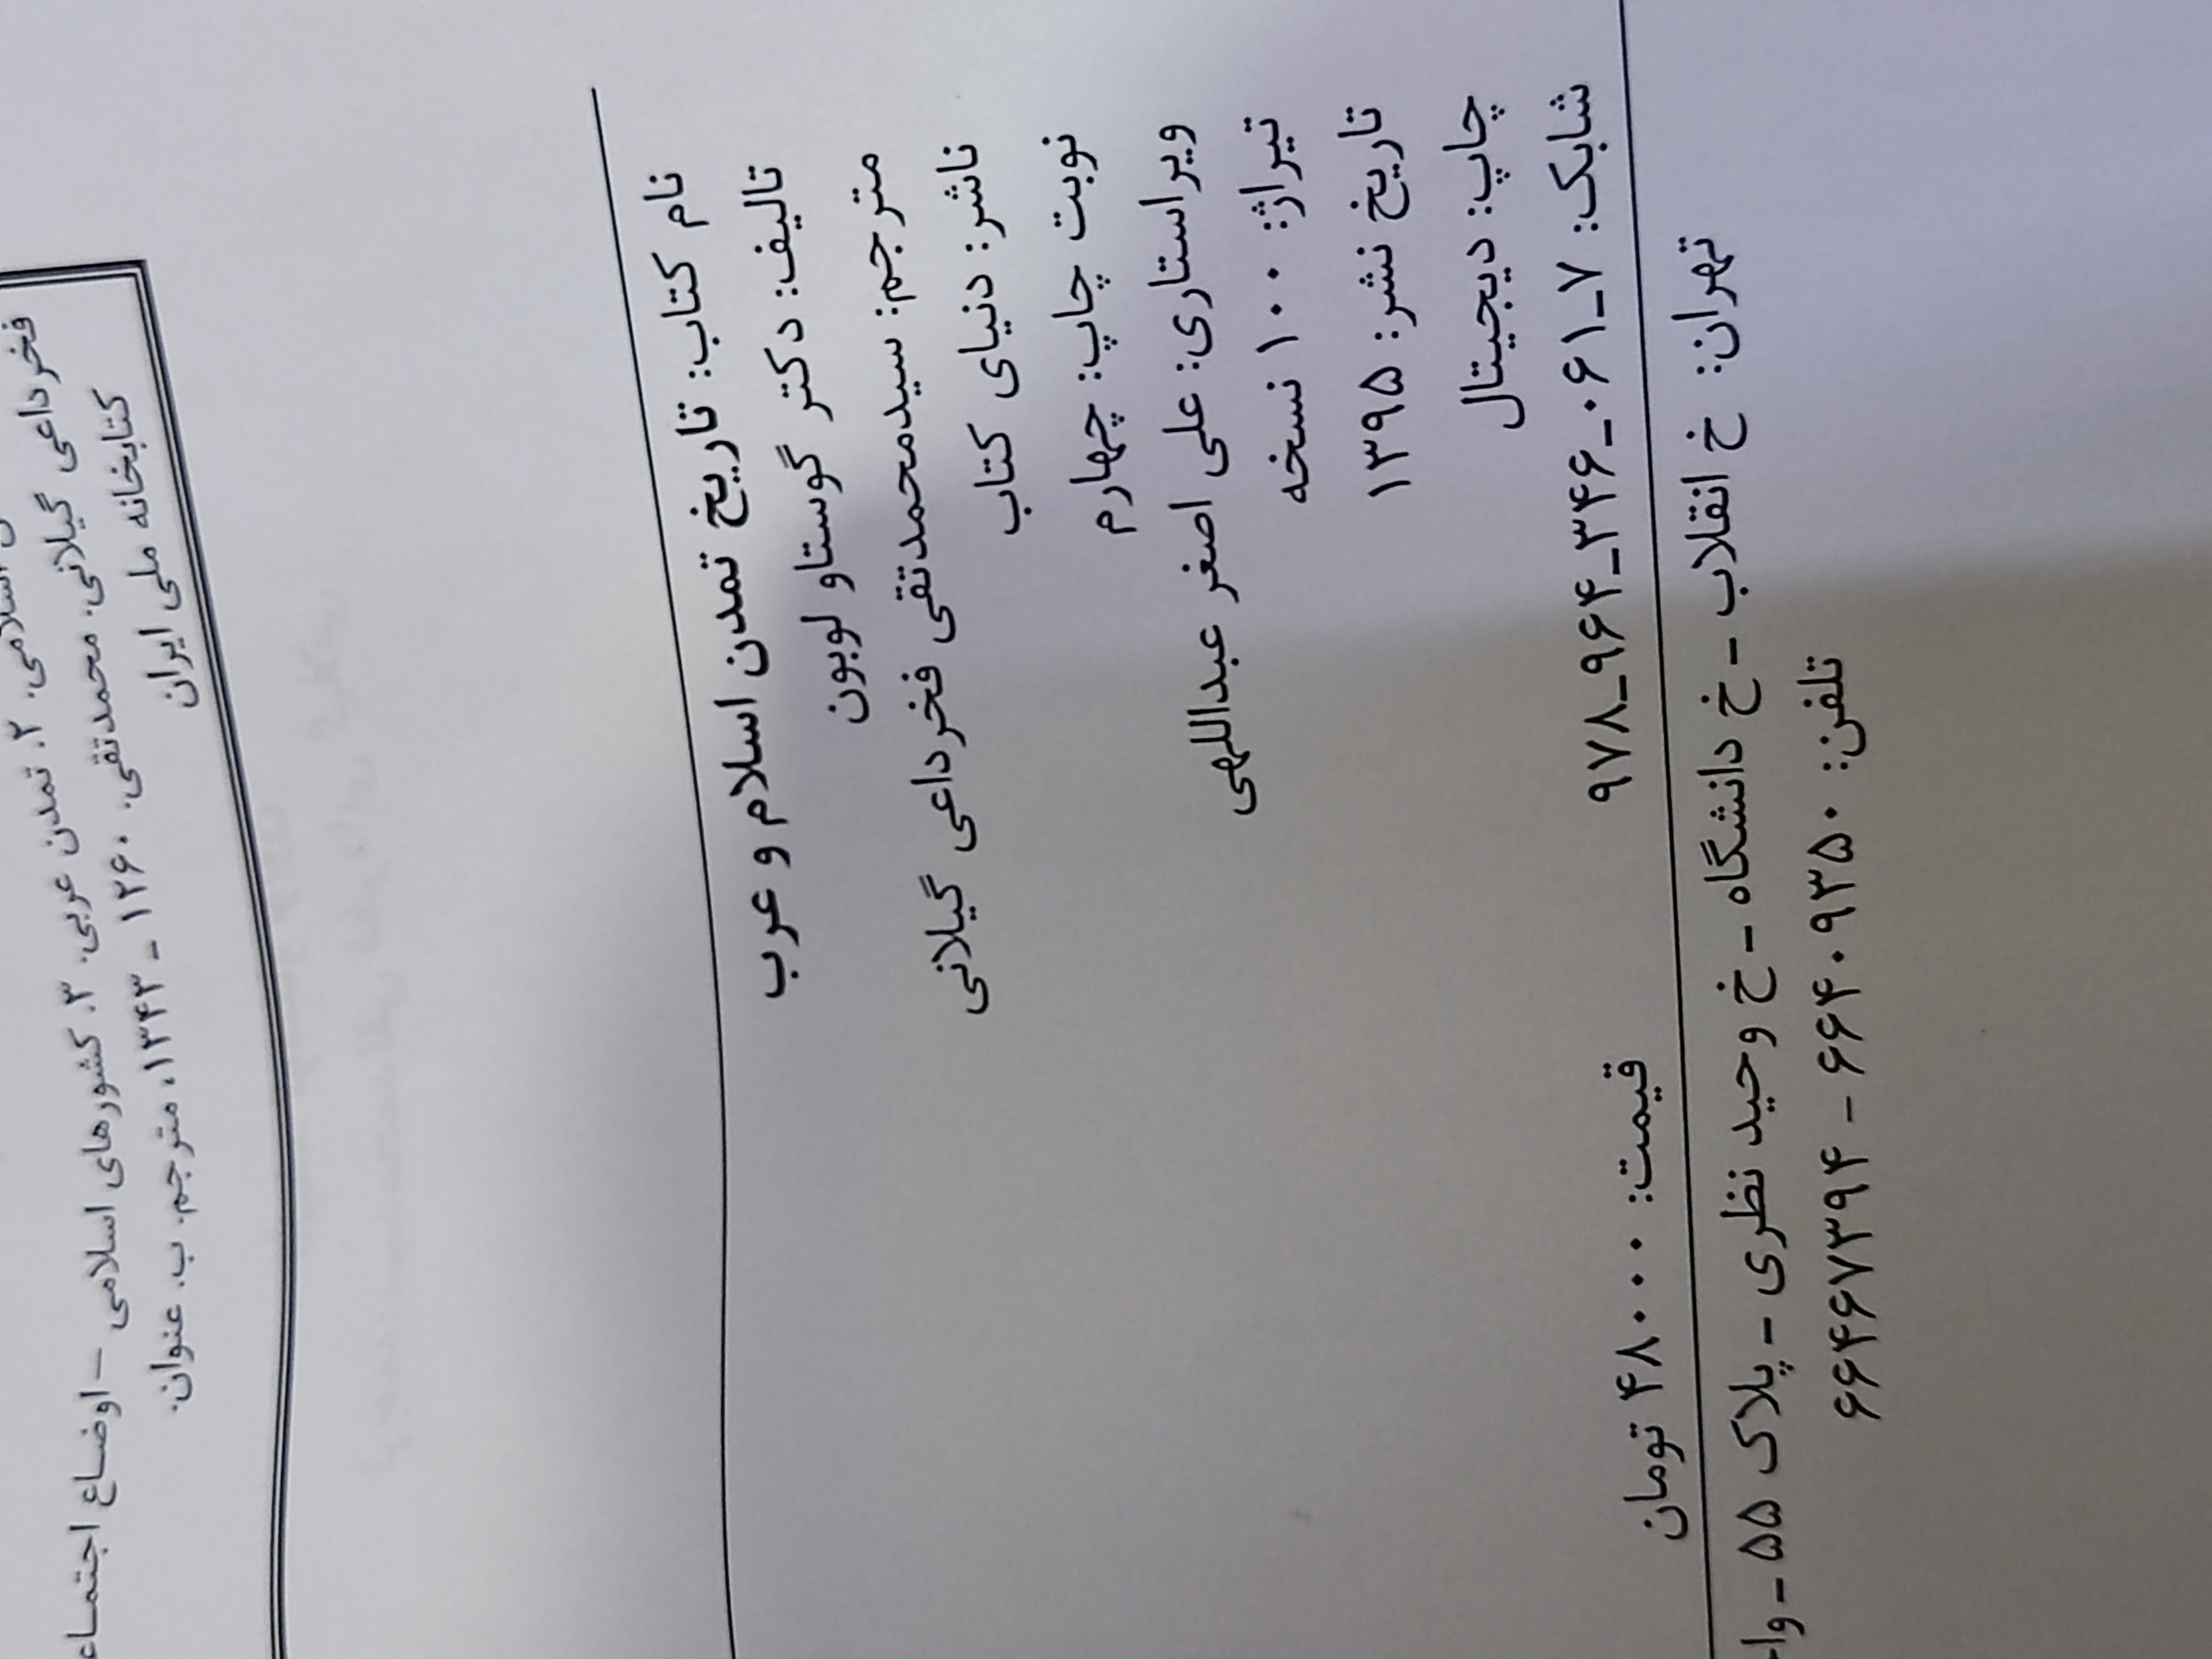 اسلامی. ۲. تمدن عربی. ۳. کشورهای اسلامی – اوضاع
فخرداعی گیلانی، محمدتقی، ۱۲۶۰ - ۱۳۴۳، مترجم. ب. عنوان.
کتابخانه ملی ایران
نام کتاب: تاریخ تمدن اسلام و عرب
تالیف: دکتر گوستاو لوبون
مترجم: سیدمحمدتقی فخرداعی گیلانی
ناشر: دنیای کتاب
نوبت چاپ: چهارم
ویراستاری: علی اصغر عبداللهی
تیراژ: ۱۰۰ نسخه
تاریخ نشر: ۱۳۹۵
چاپ: دیجیتال
شابک: ۷-۰۶۱-۳۴۶-۹۶۴-۹۷۸ قیمت: ۴۸۰۰۰ تومان
تهران: خ انقلاب - خ دانشگاه - خ وحید نظری - پلاک ۵۵ -
تلفن: ۶۶۴۰۹۳۵۰ - ۶۶۴۶۷۳۹۴